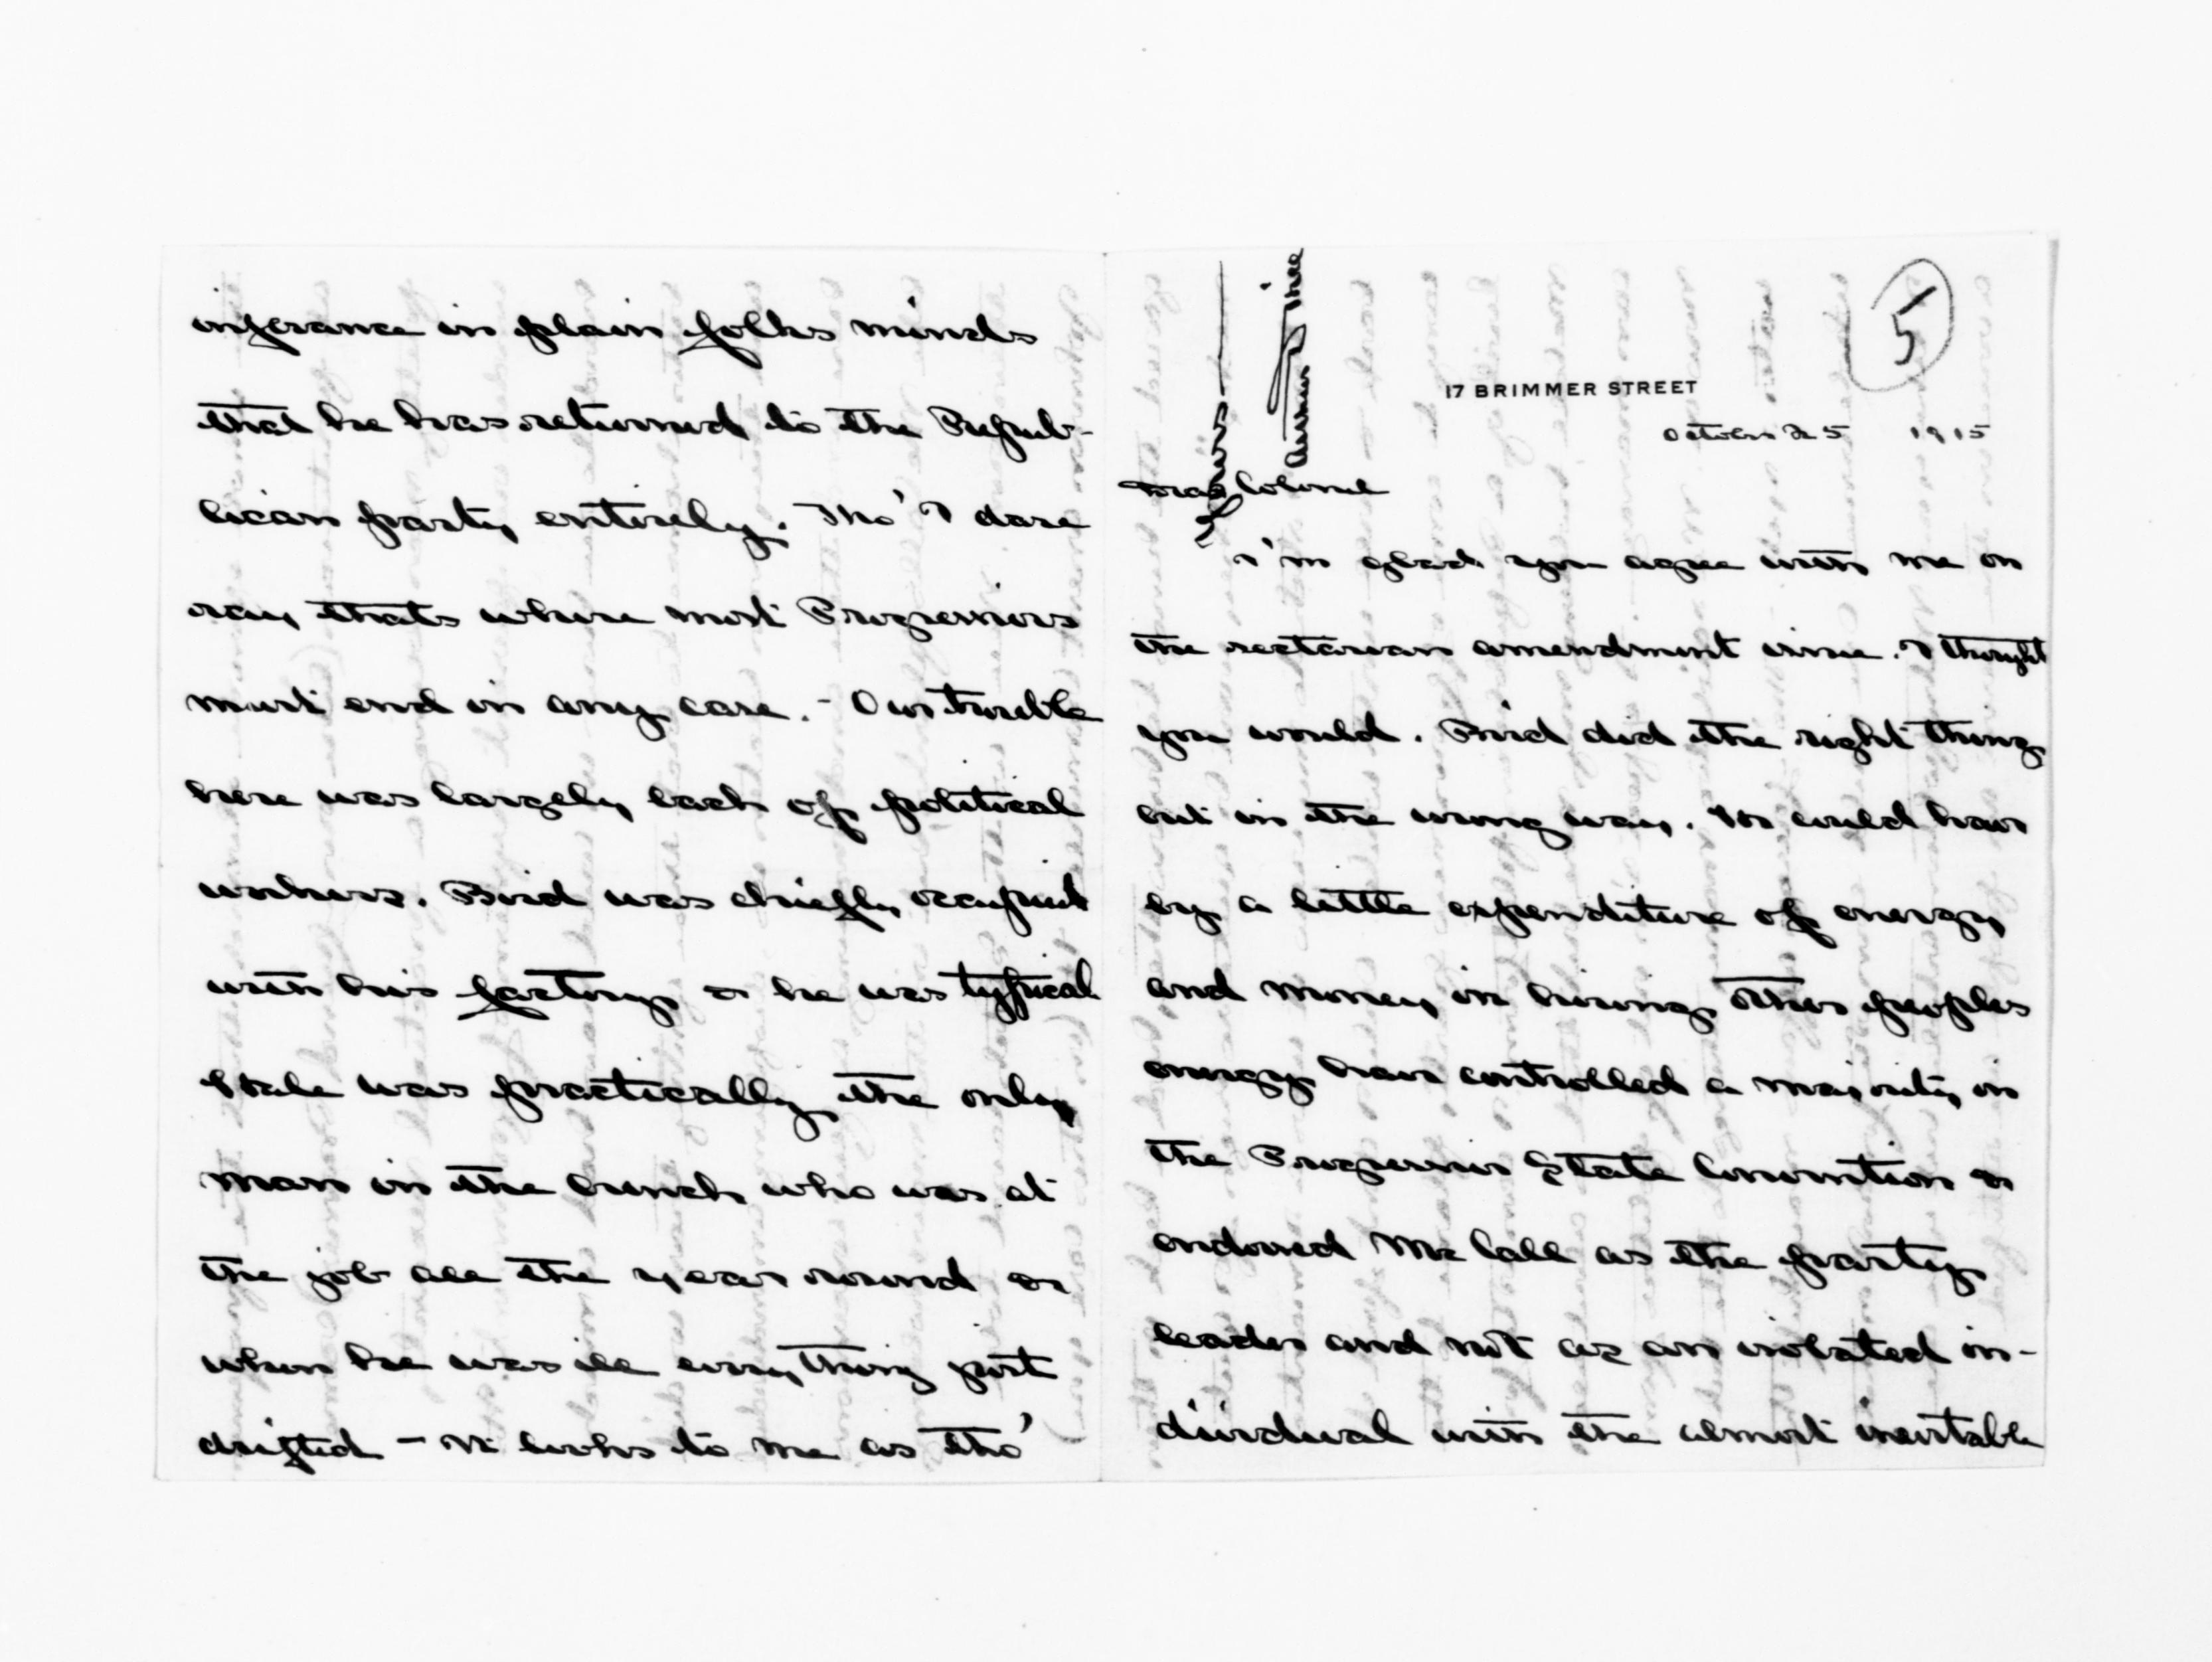 5
17 BRIMMER STREET
October 25 1915
Dear Colonel
I'm glad you agree with me on
the sectarian amendment issue. I thought
you would. Bird did the right thing
but in the wrong way. He could have
by a little expenditure of energy
and money in hiring other peoples
energy have controlled a majority in
the Progressive State Convention &
endorsed McCall as the party
leader and not as an isolated in-
dividual with the almost inevitable
inferance in plain folks minds
that he has returned to the Repub-
lican party entirely. Tho' I dare
say thats where most Progressives
must end in any case. - Our trouble
here was largely lack of political
workers. Bird was chiefly occupied
with his factory & he was typical
Hale was practically the only
man in the bunch who was at
the job all the year round &
when he was ill everything just
drifted - It looks to me as tho'
Yours
Arthur D Hill